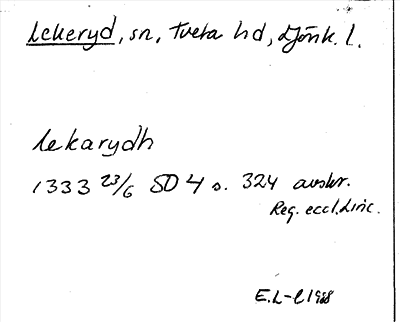 Lekeryd, sn, Tveta hd, Jönk. l.
lekarydh
1333 23/6 SD 4 s. 324 avskr.
Reg. eccl. Linc.
E.L-l 1988